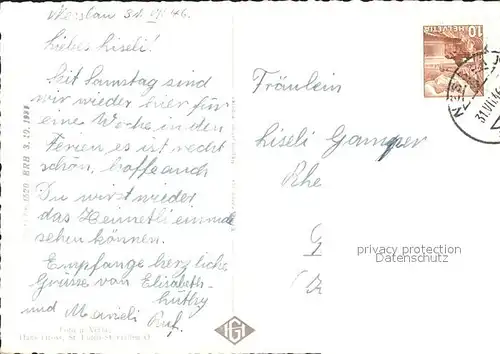 Nesslau 31. VII. 46.
Liebes Liseli!
Seit Samstag sind
wir wieder hier für
eine Woche in den
Ferien es ist recht
schön, hoffe auch
Du wirst wieder
das Heimetli einmal
sehen können.
Empfange herzliche
Grüsse von Elisabeth
und Marieli Ruf.
Fräulein
Liseli Gamper
Rhe
HELVETIA
10
31.VII.46
1520 BRB 3. 10. 1939
Foto u. Verlag
Hans Gross, St. Gallen
privacy protection
Datenschutz